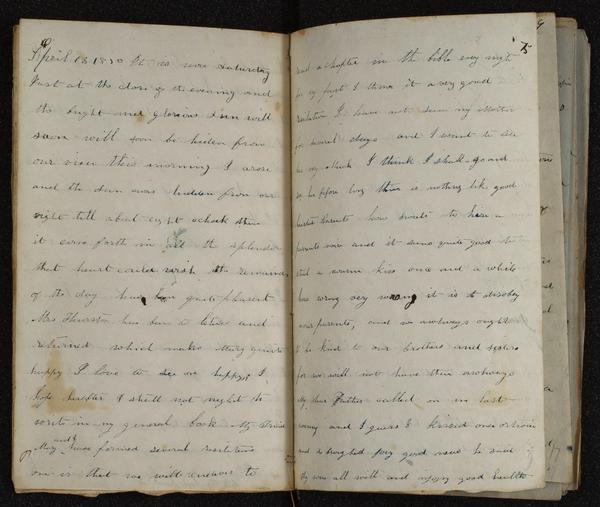 April 13 1850 It is now Saturday
Just at the close of the evening and
the bright and glorious Sun will
soon will soon be hiden from
our view this morning I arose
and the Sun was hidden from our
sight till about eight oclock then
it came forth in all the splendor
that heart could wish the remainder
of the day has been quite plesent
Mrs Thurston has been to and
returned which makes Mary quite
happy I love to see one happy I
hope hearafter I shall not night to
write in my general book My Friend
Mary and have formed several resolutions
one is that we will endevor to
75
read a chapter in the bible evry night
for my part I think it a very good
resolution I have not seen my
for several days and I want to see
her very much I think I shall go and
see her before long there is nothing like good
parents how sweet to hear a
parents voice and it seems quite good to
steal a warm kiss once and a while
how wrong very wrong it is to disobey
our parents, and we awlways ought
to be kind to our brothers and sisters
for we will not have them awlways
My dear Father called on us last
evening and I guess I kissed once or twice
and he brought very good news he said
they were all well and injoy good health